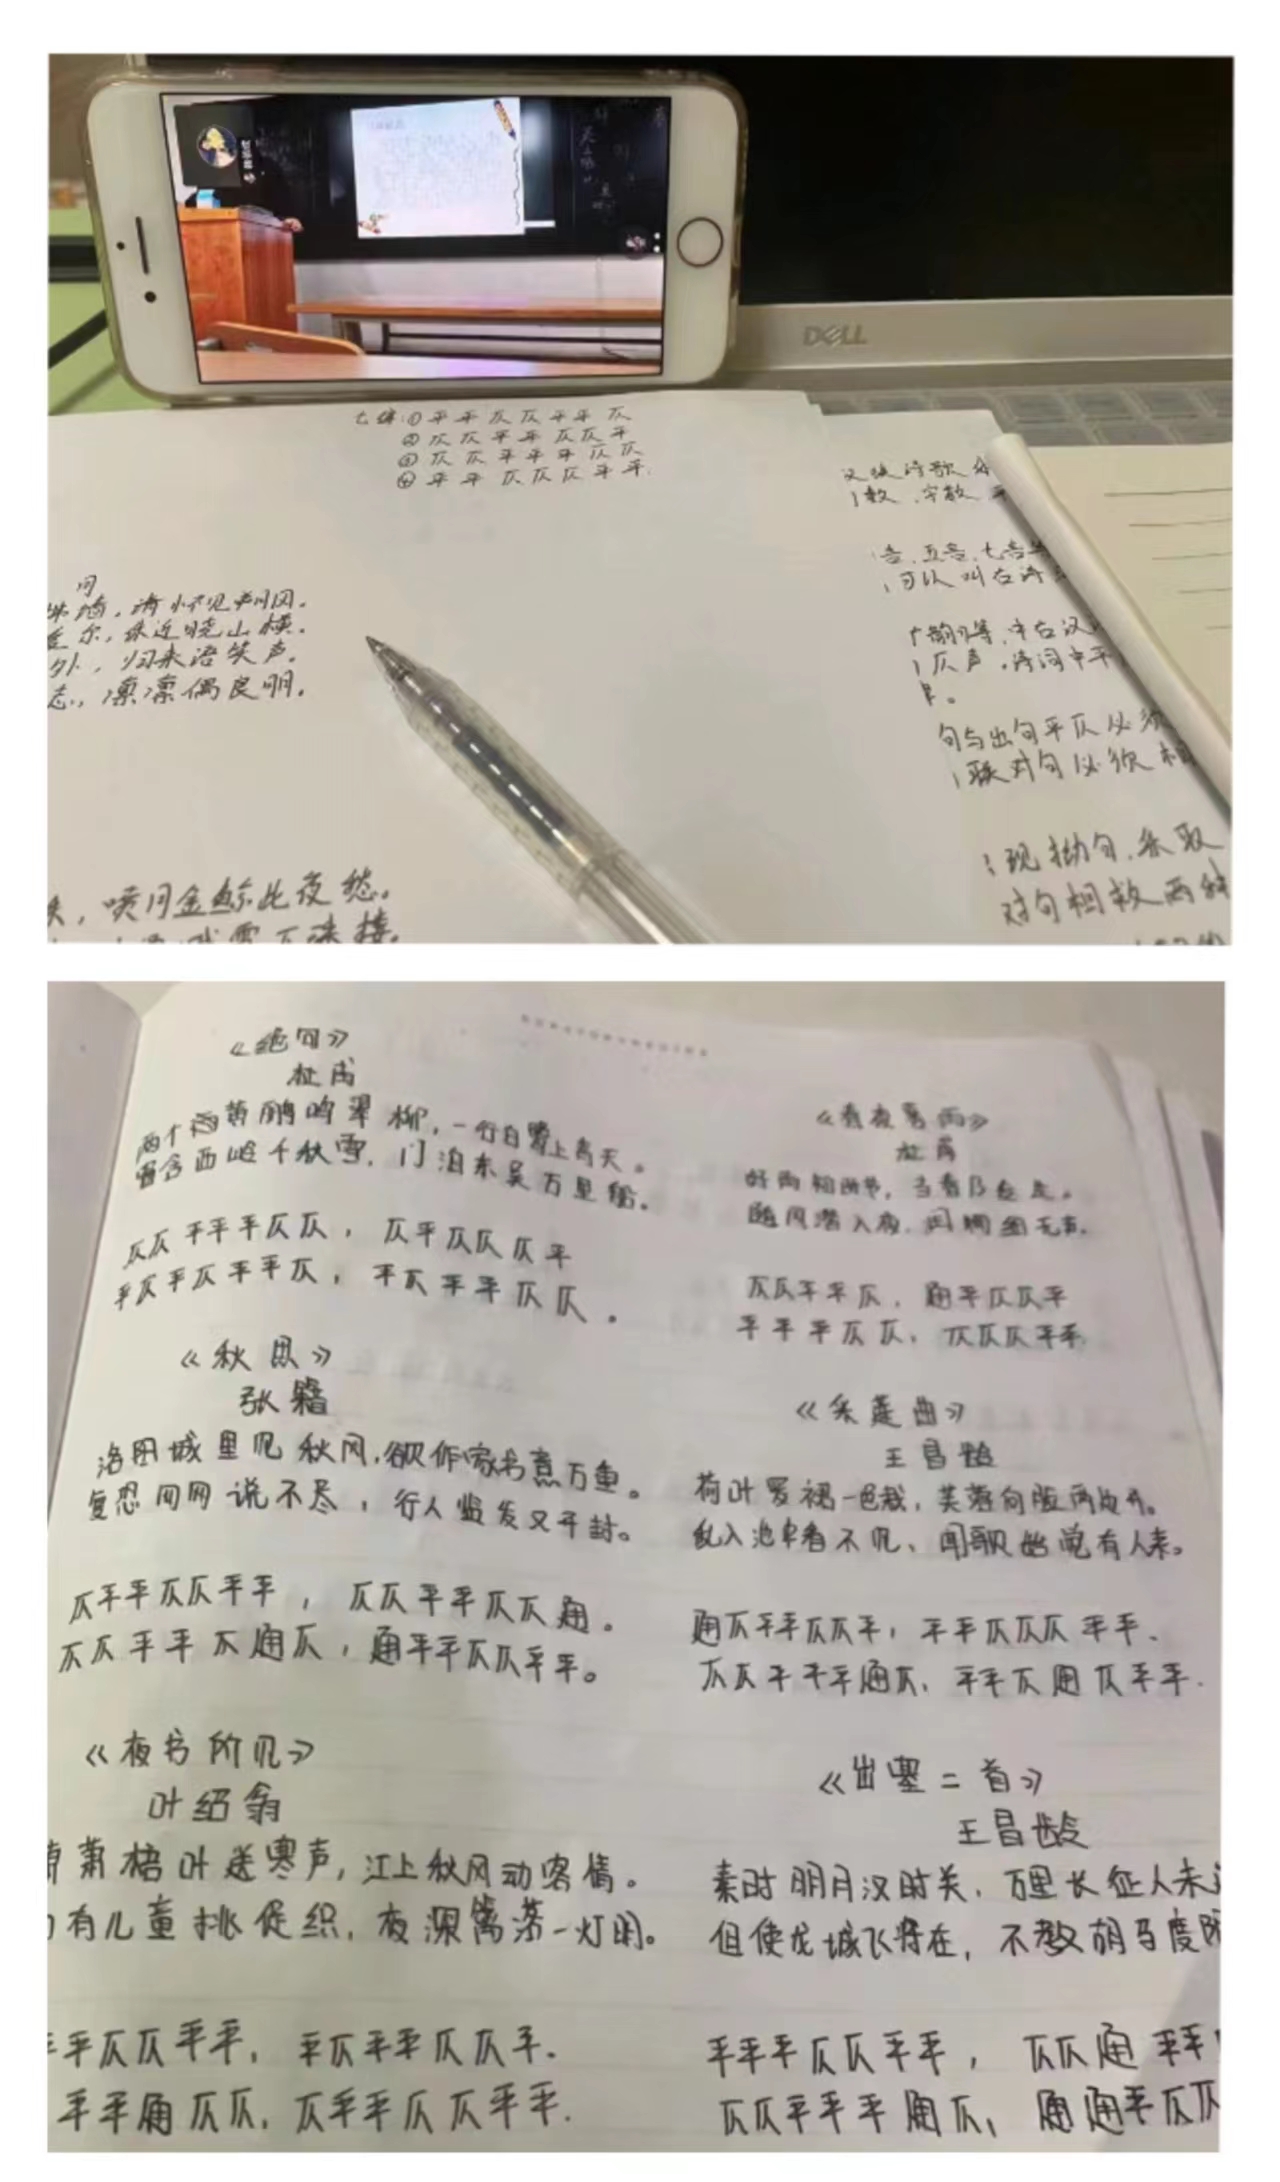 DELL
七律:①平平仄仄平平仄
②仄仄平平仄仄平
③仄仄平平平仄仄
④平平仄仄仄平平.
汉诗歌
数、字数、平
言、五言、七言
可以叫古诗
韵等,中古汉
仄声。诗词中平
句与出句平仄必须
联对句必须相
现拗句,采取
对句相救两种
归来语笑声。
志,凛凛偶良朋。
,喷月金鲸此夜愁。
《绝句》
杜甫
两个黄鹂鸣翠柳,一行白鹭上青天。
窗含西岭千秋雪,门泊东吴万里船。
仄仄平平平仄仄,仄平仄仄仄平
平仄平仄平平仄,平仄平平仄仄。
《秋思》
张籍
洛阳城里见秋风,欲作家书意万重。
复恐匆匆说不尽,行人临发又开封。
仄平平仄仄平平,仄仄平平仄仄通。
仄仄平平仄通仄,通平平仄仄平平。
《夜书所见》
叶绍翁
萧梧叶送寒声,江上秋风动客情。
有儿童挑促织,夜深篱落一灯明。
平仄仄平平,平仄平平仄仄平.
平平通仄仄,仄平平仄仄平平.
《春夜喜雨》
杜甫
好雨知时节,当春乃发生。
随风潜入夜,润物细无声.
仄仄平平仄,通平仄仄平
平平平仄仄,仄仄仄平平
《采莲曲》
王昌龄
荷叶罗裙一色裁,芙蓉向脸两边开。
乱入池中看不见,闻歌始觉有人来。
通仄平平仄仄平,平平仄仄仄平平、
仄仄平平平通仄,平平仄通仄平平.
《出塞二首》
王昌龄
秦时明月汉时关,万里长征人未
但使龙城飞将在,不教胡马度阴
平平平仄仄平平,仄仄通平平
仄仄平平平通仄,通通平仄仄